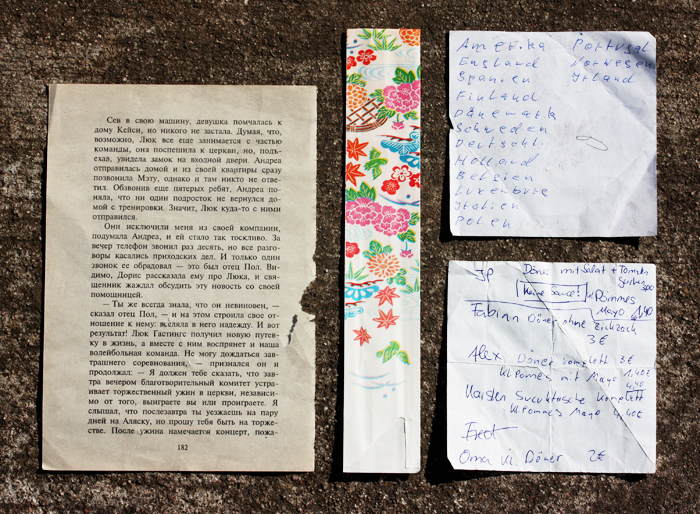 Сев в свою машину, девушка помчалась к
дому Кейси, но никого не застала. Думая, что,
возможно, Люк все еще занимается с частью
команды, она поспешила к церкви, но, подъ-
ехав, увидела замок на входной двери. Андреа
отправилась домой и из своей квартиры сразу
позвонила Мэту, однако и там никто не отве-
тил. Обзвонив еще пятерых ребят, Андреа по-
няла, что ни один подросток не вернулся до-
мой с тренировки. Значит, Люк куда-то с ними
отправился.
Они исключили меня из своей компании,
подумала Андреа, и ей стало так тоскливо. За
вечер телефон звонил раз десять, но все разго-
воры касались приходских дел. И только один
звонок ее обрадовал — это был отец Пол. Ви-
димо, Дорис рассказала ему про Люка, и свя-
щенник жаждал обсудить эту новость со своей
помощницей.
— Ты же всегда знала, что он невиновен, —
сказал отец Пол, — и на этом строила свое от-
ношение к нему: вселяла в него надежду. И вот
результат! Люк Гастингс получил новую путев-
ку в жизнь, а вместе с ним воспрянет и наша
волейбольная команда. Не могу дождаться зав-
трашнего соревнования, — признался он и
продолжал: — Я должен тебе сказать, что зав-
тра вечером благотворительный комитет устра-
ивает торжественный ужин в церкви, независи-
мо от того, выиграете вы или проиграете. Я
слышал, что послезавтра ты уезжаешь на пару
дней на Аляску, но прошу тебя быть на торже-
стве. После ужина намечается концерт, пожа-
182
Amerika Portugal
England Norwegen
Spanien Irland
Finland
Dänemark
Schweden
Deutschl.
Holland
Belgien
Luxenburg
Italien
Polen
JP Döner mit Salat + Tomaten
Gurken
[Keine Sauce!] Kl Pommes
Mayo 1,40
Fabian Döner ohne Zickzack
3€
Alex Döner komplett 3€
Kl Pommes mit Mayo 1,40€
4,40
Karsten komplett
Kl Pommes Mayo 4,40€
Fred
Oma kl. Döner 2€